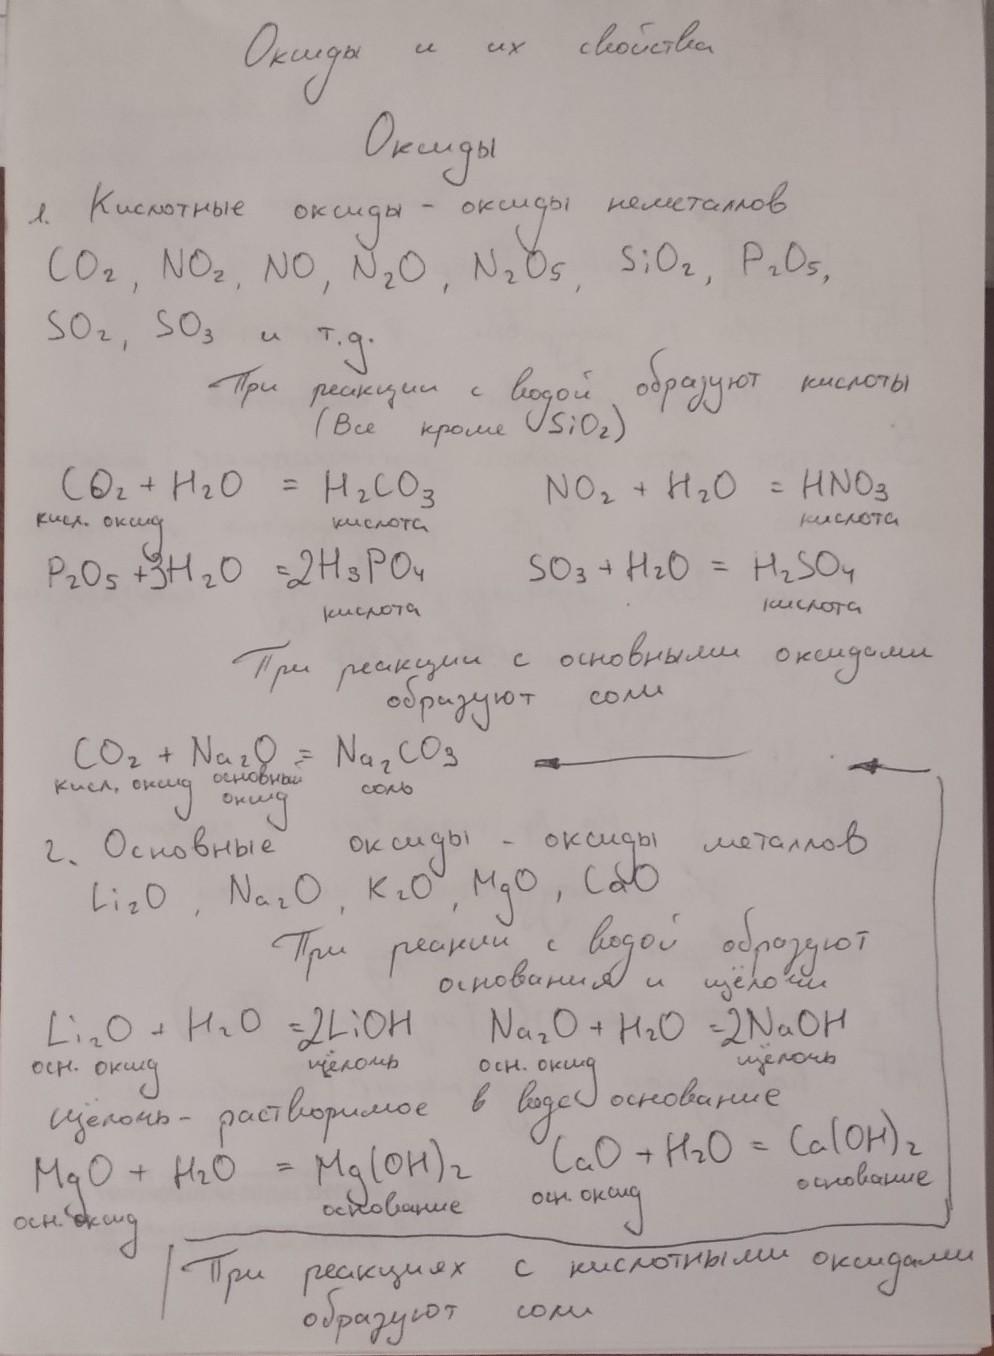 Оксиды и их свойства
Оксиды
1. Кислотные оксиды - оксиды неметаллов
CO₂, NO₂, NO, N₂O, N₂O₅, SiO₂, P₂O₅,
SO₂, SO₃ и т.д.
При реакции с водой образуют кислоты
(Все кроме SiO₂)
CO₂ + H₂O = H₂CO₃ NO₂ + H₂O = HNO₃
кисл. оксид кислота кислота
P₂O₅ + 3H₂O = 2H₃PO₄ SO₃ + H₂O = H₂SO₄
кислота кислота
При реакции с основными оксидами
образуют соли
CO₂ + Na₂O = Na₂CO₃
кисл. оксид основный оксид соль
2. Основные оксиды - оксиды металлов
Li₂O, Na₂O, K₂O, MgO, CaO
При реакии с водой образуют
основания и щёлочи
Li₂O + H₂O = 2LiOH Na₂O + H₂O = 2NaOH
осн. оксид щёлочь осн. оксид щёлочь
Щёлочь - растворимое в воде основание
MgO + H₂O = Mg(OH)₂ CaO + H₂O = Ca(OH)₂
осн. оксид основание осн. оксид основание
При реакциях с кислотными оксидами
образуют соли